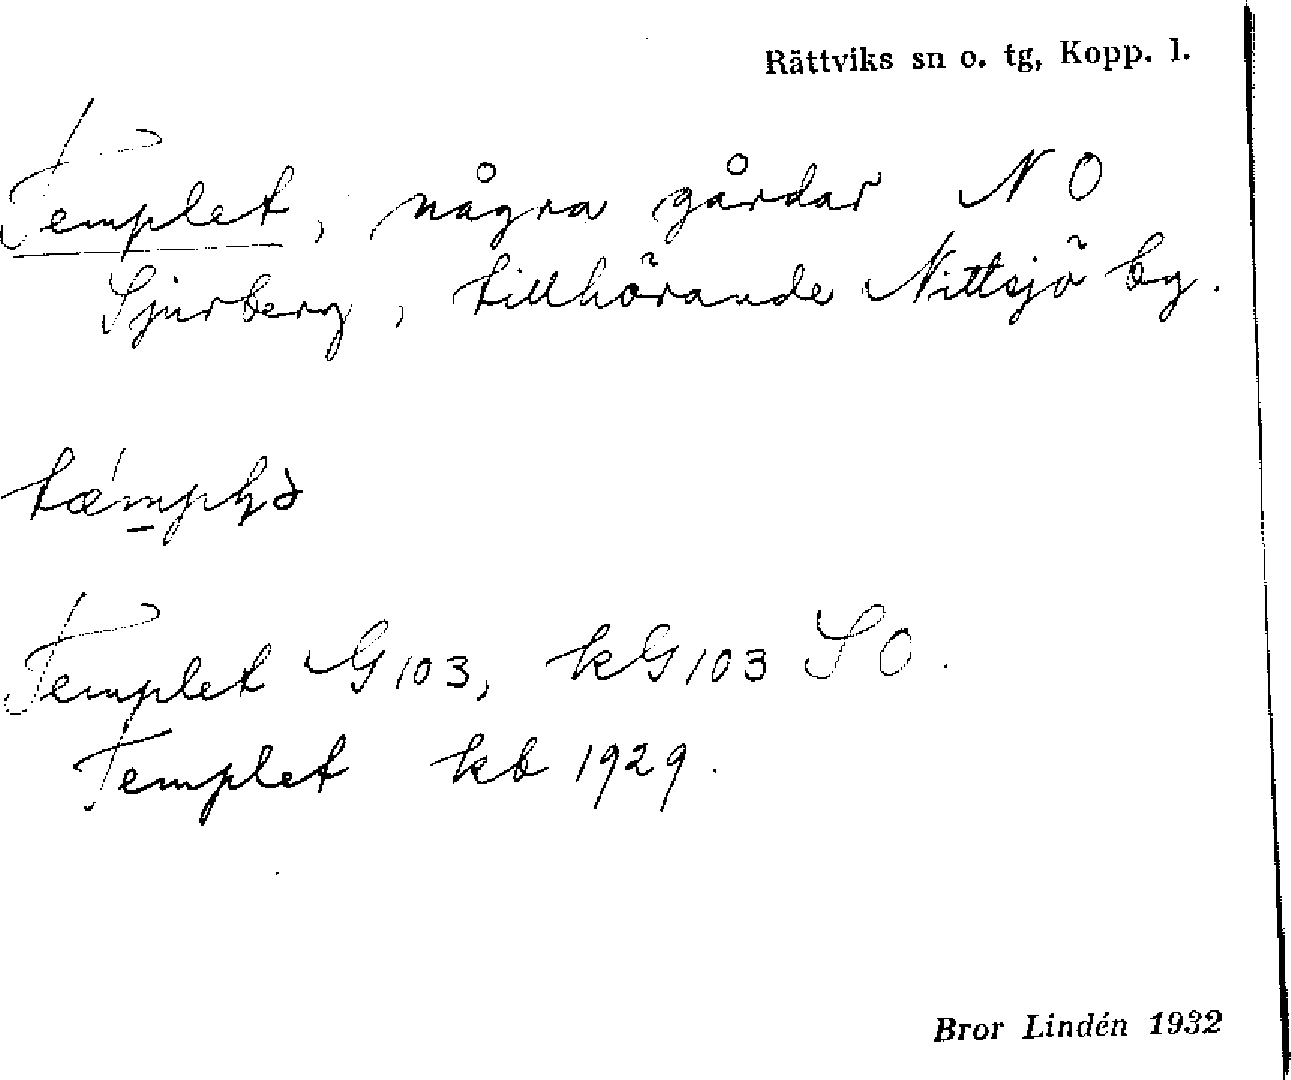 Rättviks sn o. tg, Kopp. l.
Templet, några gårdar NO
Sjurberg, tillhörande Nittsjö by.
Templet G103, kG103 SO.
Templet kb 1929.
Bror Lindén 1932